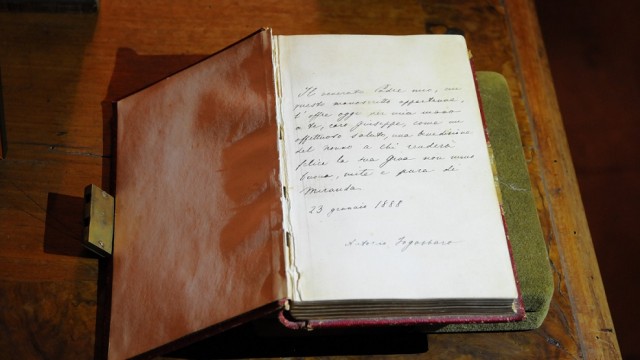 Il venerato Padre mio, cui
questo manoscritto apparteneva,
l'offre oggi per mia mano
a te, caro Giuseppe, come un
affettuoso saluto, una benedizione
del nonno a chi renderà
felice la sua Gina non meno
buona, mite e pura de
Miranda.
23 gennaio 1888
Antonio Fogazzaro